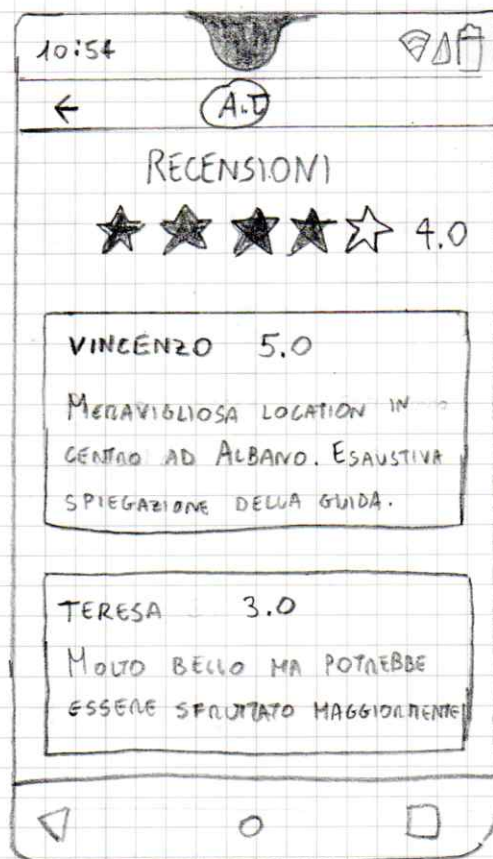 10:54
A.T
RECENSIONI
4.0
VINCENZO 5.0
MERAVIGLIOSA LOCATION IN
CENTRO AD ALBANO. ESAUSTIVA
SPIEGAZIONE DELLA GUIDA.
TERESA 3.0
MOLTO BELLO MA POTREBBE
ESSERE SFRUTTATO MAGGIORMENTE